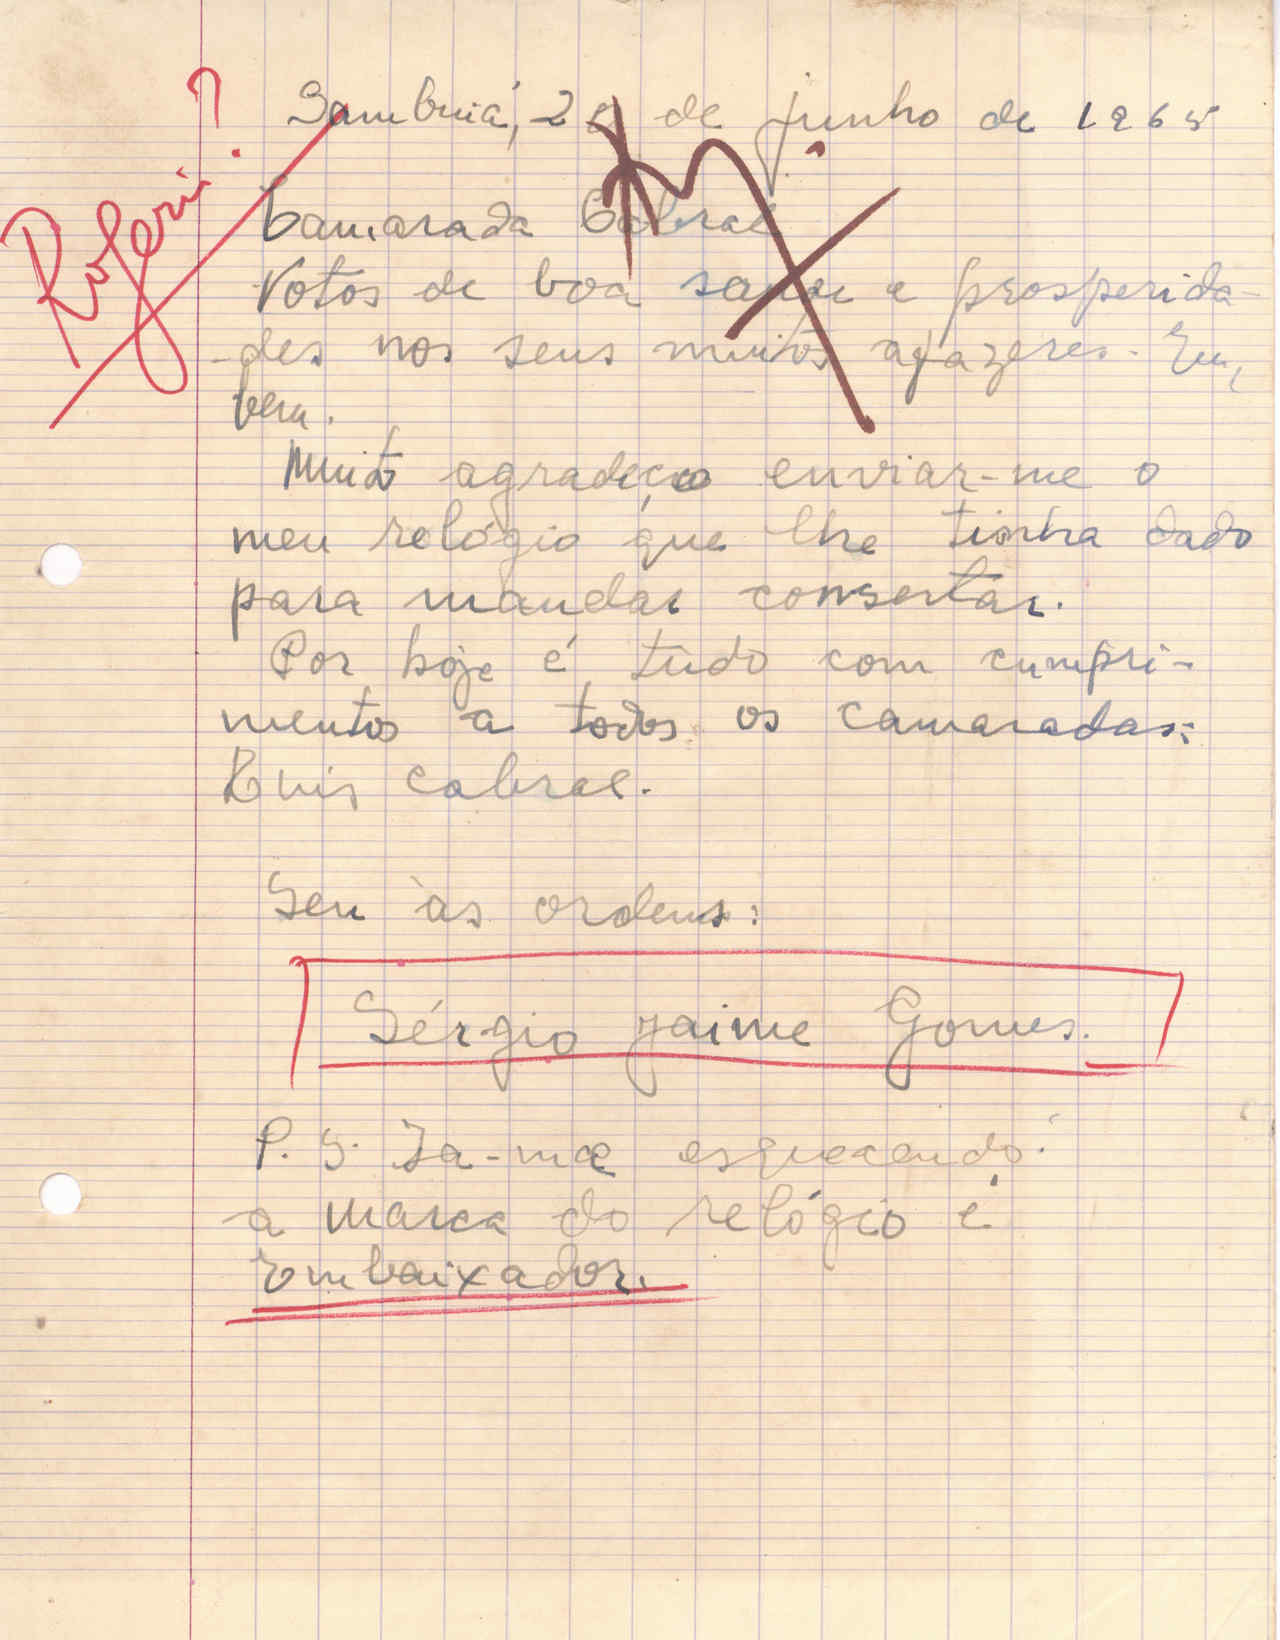 Referi?
Sambuiá, 2 de junho de 1965
Camarada Cabral
Votos de boa saude e prosperida-
-des nos seus muitos afazeres. Eu,
bem.
Muito agradeço enviar-me o
meu relógio que lhe tinha dado
para mandar consertar.
Por hoje é tudo com cumpri-
mentos a todos os camaradas:
Luis Cabral.
Seu às ordens:
Sérgio Jaime Gomes.
P.S. Ia-me esquecendo:
a marca do relógio é
Embaixador.